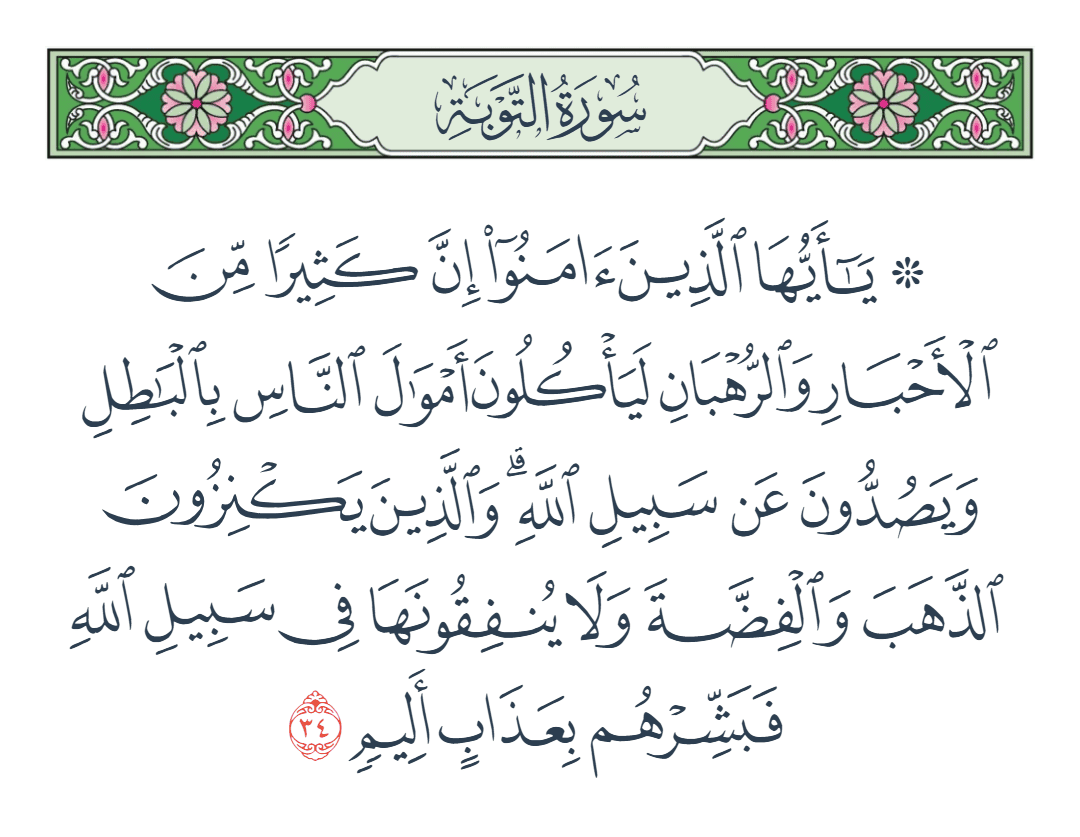 سُورَةُ التَّوْبَةِ
۞ يَـٰٓأَيُّهَا ٱلَّذِينَ ءَامَنُوٓا۟ إِنَّ كَثِيرًا مِّنَ
ٱلْأَحْبَارِ وَٱلرُّهْبَانِ لَيَأْكُلُونَ أَمْوَٰلَ ٱلنَّاسِ بِٱلْبَـٰطِلِ
وَيَصُدُّونَ عَن سَبِيلِ ٱللَّهِ ۗ وَٱلَّذِينَ يَكْنِزُونَ
ٱلذَّهَبَ وَٱلْفِضَّةَ وَلَا يُنفِقُونَهَا فِى سَبِيلِ ٱللَّهِ
فَبَشِّرْهُم بِعَذَابٍ أَلِيمٍ ٣٤